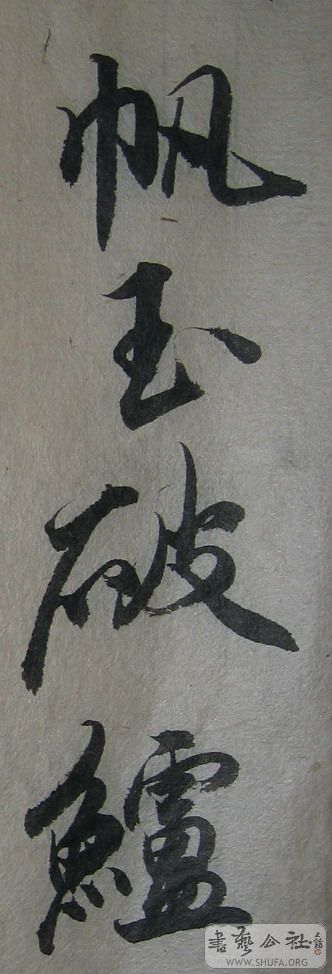 帆玉破鱸
書藝公社
WWW.SHUFA.ORG